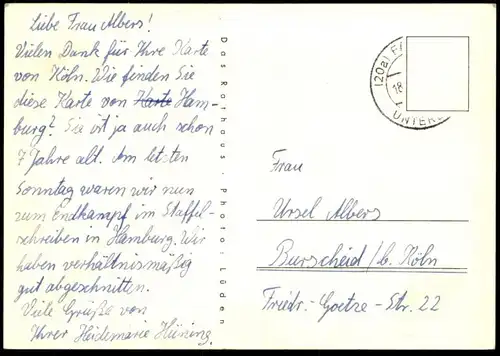 Liebe Frau Albers!
Vielen Dank für Ihre Karte
von Köln. Wie finden Sie
diese Karte von Karte Ham-
burg? Sie ist ja auch schon
7 Jahre alt. Am letzten
Sonntag waren wir nun
zum Endkampf im Staffel-
schreiben in Hamburg. Wir
haben verhältnismäßig
gut abgeschnitten.
Viele Grüße von
Ihrer Heidemarie Hüsing.
Das Rathaus · Photo: Lüden
(20a)
18.
UNTERL
Frau
Ursel Albers
Burscheid / b. Köln
Friedr.-Goetze-Str. 22